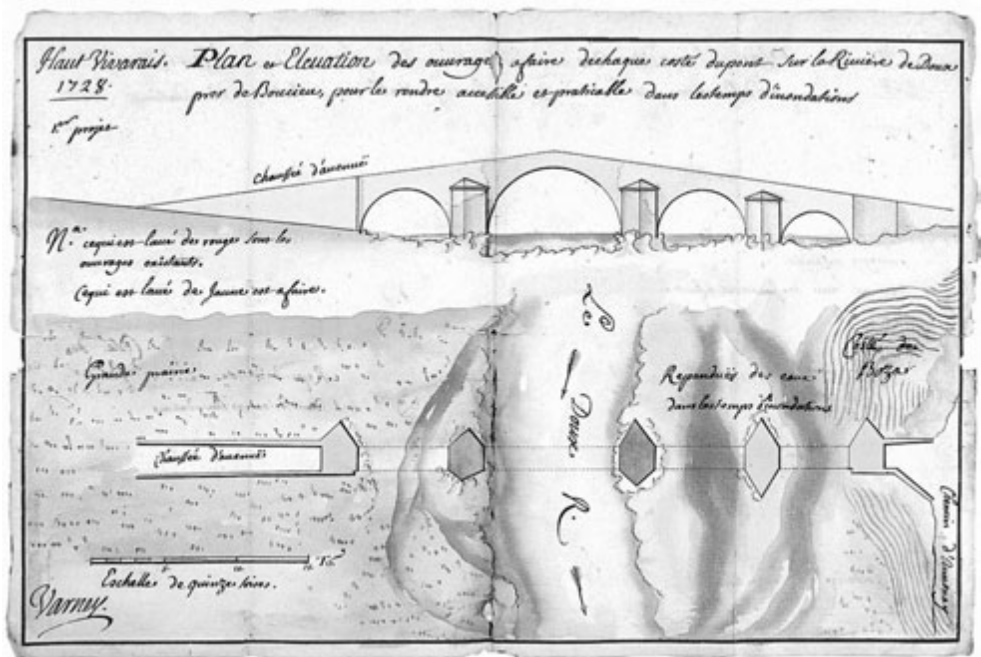 Haut Vivarais. Plan et Elevation des ouvrages a faire de chaque costé du pont sur la Riviere de Doux
1728. pres de Boucieu, pour le rendre accessible et praticable dans les temps d'inondations
1er projet
Chaussé d'avenuë
Na. ce qui est lavé des rouges sont les
ouvrages existants.
Ce qui est lavé de Jaune est a faire.
Le Doux R.
Grande prairie
Costé du
Repanduës des eaux
dans les temps d'inondations
Chaussée d'avenuë
Eschelle de quinze toises.
Varney.